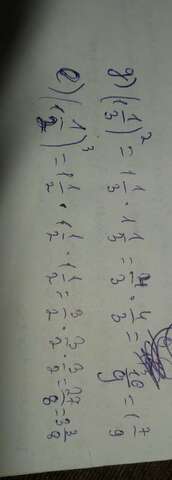 д) (1 1/3)² = 1 1/3 · 1 1/3 = 4/3 · 4/3 = 16/9 = 1 7/9
е) (1 1/2)³ = 1 1/2 · 1 1/2 · 1 1/2 = 3/2 · 3/2 · 3/2 = 27/8 = 3 3/8